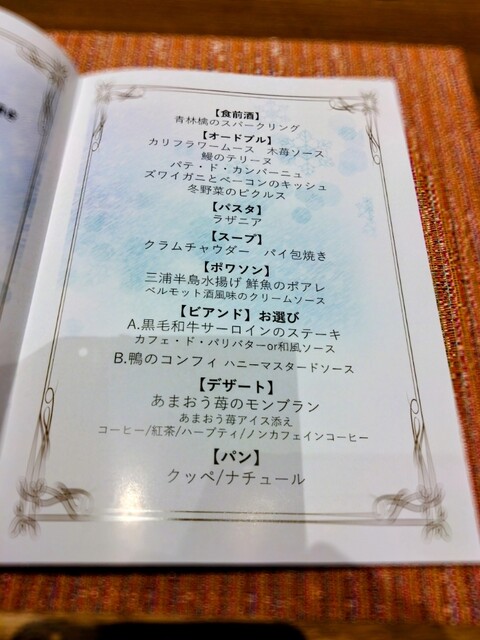 【食前酒】
青林檎のスパークリング
【オードブル】
カリフラワームース　木苺ソース
鰻のテリーヌ
パテ・ド・カンパーニュ
ズワイガニとベーコンのキッシュ
冬野菜のピクルス
【パスタ】
ラザニア
【スープ】
クラムチャウダー　パイ包焼き
【ポワソン】
三浦半島水揚げ 鮮魚のポアレ
ベルモット酒風味のクリームソース
【ビアンド】お選び
A.黒毛和牛サーロインのステーキ
カフェ・ド・パリバターor和風ソース
B.鴨のコンフィ ハニーマスタードソース
【デザート】
あまおう苺のモンブラン
あまおう苺アイス添え
コーヒー/紅茶/ハーブティ/ノンカフェインコーヒー
【パン】
クッペ/ナチュール